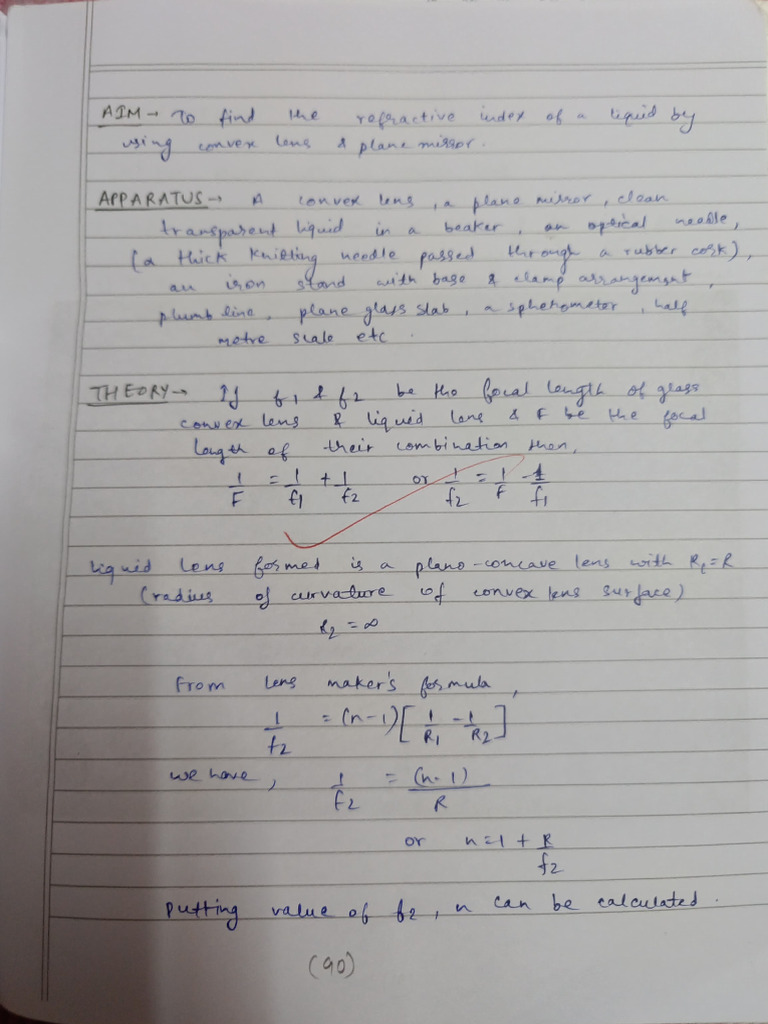 AIM → To find the refractive index of a liquid by
using convex lens & plane mirror.
APPARATUS → A convex lens, a plane mirror, clean
transparent liquid in a beaker, an optical needle,
(a thick knitting needle passed through a rubber cork),
an iron stand with base & clamp arrangement,
plumb line, plane glass slab, a spherometer, half
metre scale etc.
THEORY → If f1 & f2 be the focal length of glass
convex lens & liquid lens & F be the focal
length of their combination then,
1/F = 1/f1 + 1/f2 or 1/f2 = 1/F - 1/f1
Liquid lens formed is a plano-concave lens with R1 = R
(radius of curvature of convex lens surface)
R2 = ∞
From lens maker's formula,
1/f2 = (n-1)[1/R1 - 1/R2]
we have, 1/f2 = (n-1)/R
or n = 1 + R/f2
Putting value of f2, n can be calculated.
(90)